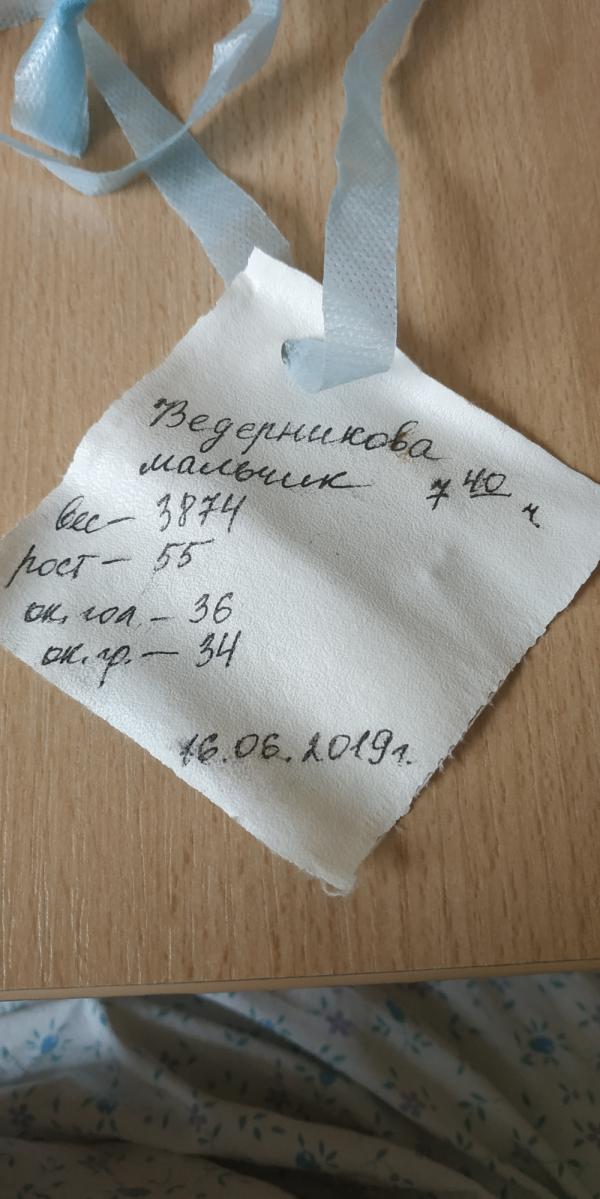 Ведерникова
мальчик 7 40 ч
вес – 3874
рост – 55
ок. гол – 36
ок. гр. – 34
16.06.2019г.